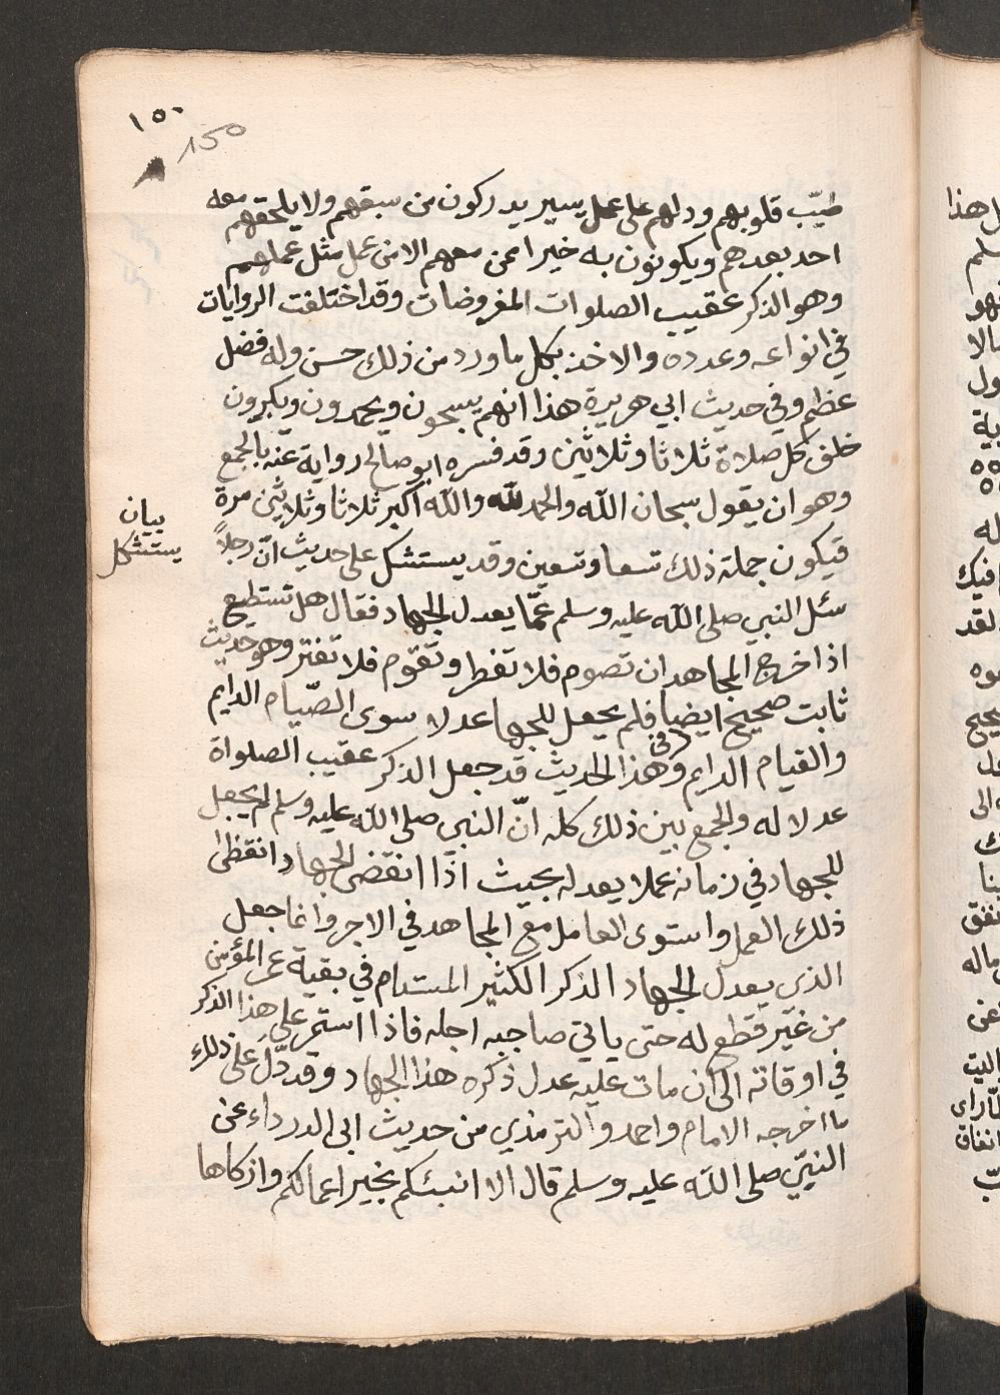 ١٥٠
150
طيّب قلوبهم ودلهم على عمل يسير يدركون من سبقهم ولا يلحقهم معه
احد بعدهم ويكونون به خيرا ممن معهم الا من عمل مثل عملهم
وهو الذكر عقيب الصلوات المفروضات وقد اختلفت الروايات
في انواعه وعدده والاخذ بكل ما ورد من ذلك حسن وله فضل
عظيم وفي حديث ابي هريرة هذا انهم يسبحون ويحمدون ويكبرون
خلف كل صلاة ثلاثا وثلاثين وقد فسره ابو صالح رواية عنه بالجمع
وهو ان يقول سبحان الله والحمد لله والله اكبر ثلاثا وثلاثين مرة
فيكون جملة ذلك تسعا وتسعين وقد يستشكل على حديث انّ رجلاً
بيان
يستشكل
سئل النبي صلى الله عليه وسلم عمّا يعدل الجهاد فقال هل تستطيع
اذا خرج المجاهد ان تصوم فلا تفطر وتقوم فلا تفتر وهو حديث
ثابت صحيح ايضا فلم يجعل للجهاد عدلا سوى الصّيام الدايم
والقيام الدايم وفي هذا الحديث قد جعل الذكر عقيب الصلواة
عدلا له والجمع بين ذلك كله انّ النبي صلى الله عليه وسلم لم يجعل
للجهاد في زمانه عملا يعدله بحيث اذا انقضى الجهاد انقظى
ذلك العمل واستوى العامل مع المجاهد في الاجر وانما جعل
الذي يعدل الجهاد الذكر الكثير المستدام في بقية عمر المؤمن
من غير قطع له حتى ياتي صاحبه اجله فاذا استمر على هذا الذكر
في اوقاته الى ان مات عليه عدل ذكره هذا الجهاد وقد دلّ على ذلك
ما اخرجه الامام واحمد والترمذي من حديث ابي الدرداء عن
النبيّ صلى الله عليه وسلم قال الا انبئكم بخير اعمالكم وازكاها